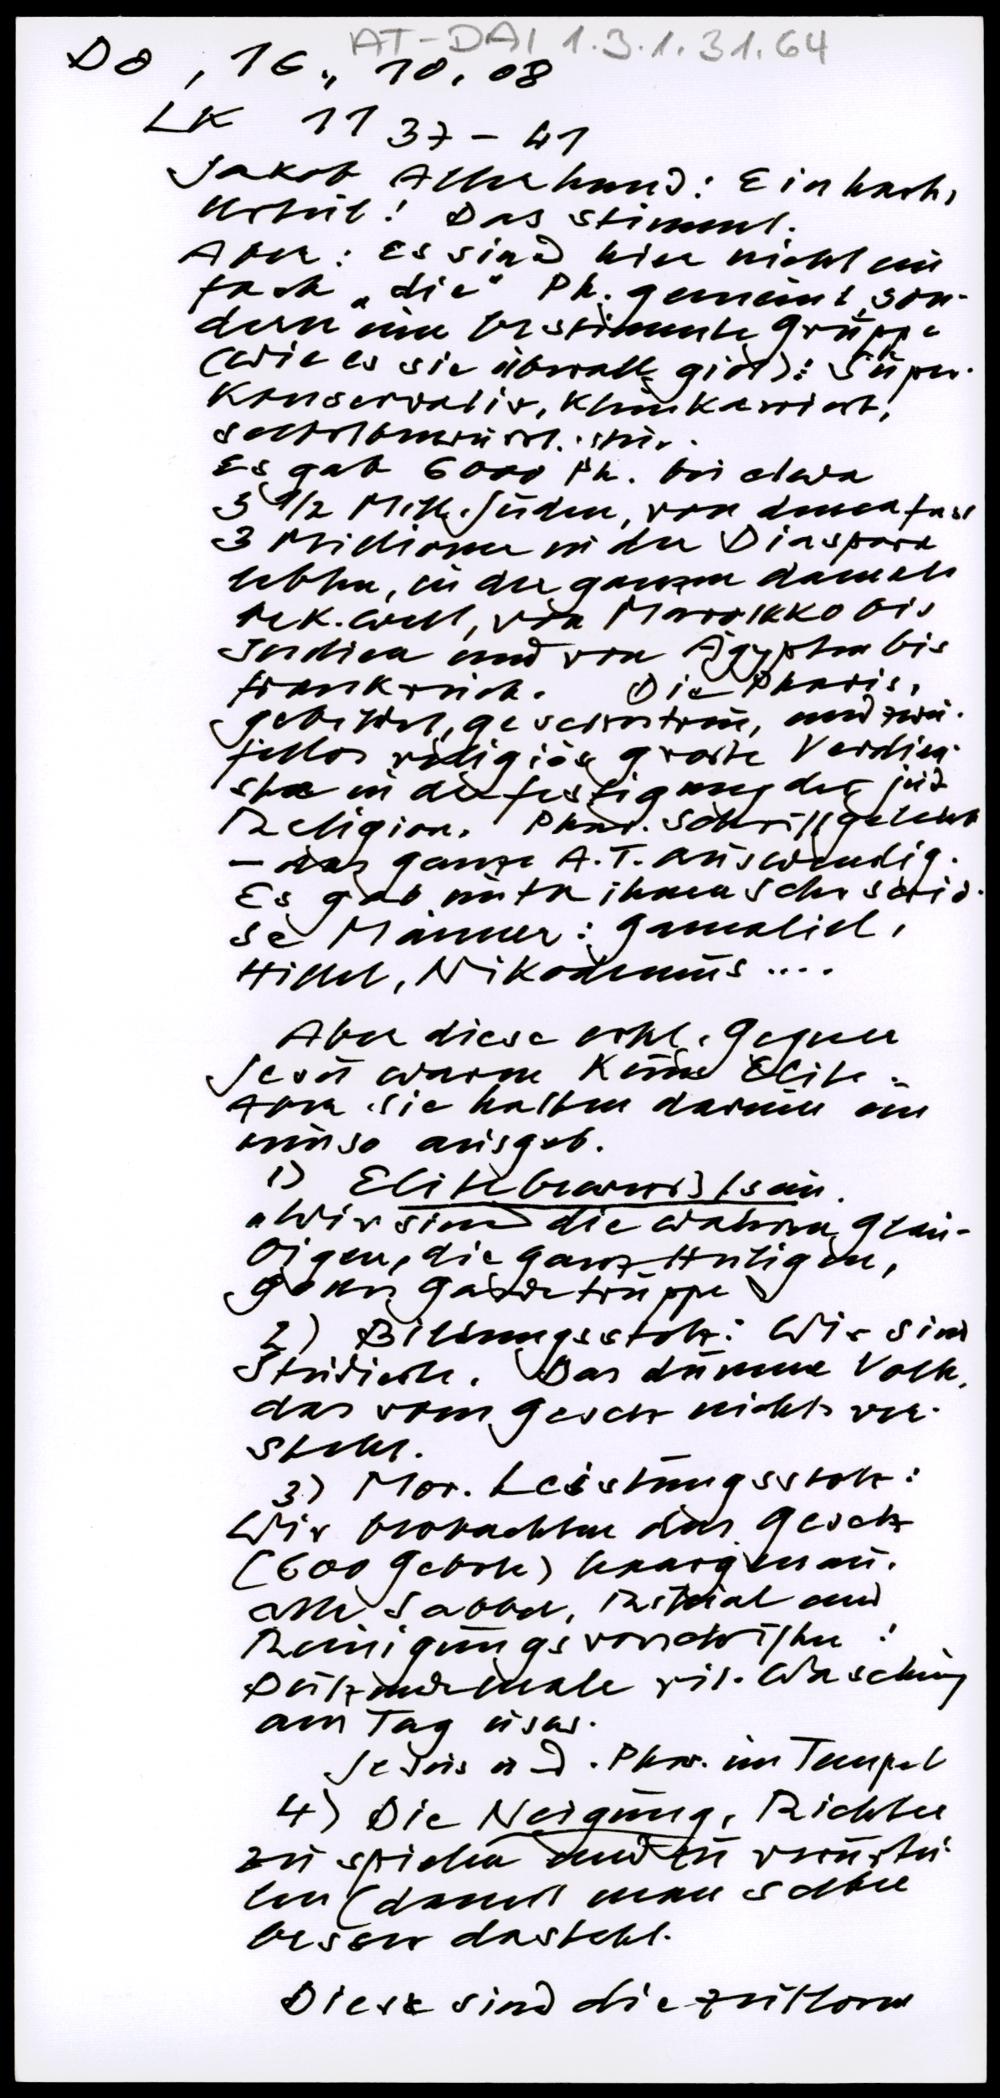 AT-DAI 1.3.1.31.64
Do, 16., 10.08
LK 11 37-41
Jakob Allerhand: Ein hart,
Urteil! Das stimmt.
Aber: Es sind hier nicht ein
fach „die" Ph. gemeint, son-
dern eine bestimmte Gruppe
(wie es sie überall gibt): Super-
konservativ, kleinkariert,
selbstbewusst.
Es gab 6000 Ph. bei etwa
3 1/2 Mill. Juden, von denen fast
3 Millionen in der Diaspora
lebten, in der ganzen damals
bek. Welt, von Marokko bis
Indien und von Ägypten bis
Frankreich. Die Pharis.
gebildet, gesetzestreu, und zwei-
fellos religiös große Verdien-
ste in der Festigung der jüd
Religion. Phar. Schriftgelehrt
- das ganze A.T. auswendig.
Es gab unter ihnen sehr seriö-
se Männer: Gamaliel,
Hillel, Nikodemus ....
Aber diese erkl. Gegner
Jesu waren keine Elite.
Aber sie hatten darum ein
umso ausgeb.
1) Elitebewusstsein.
„Wir sind die wahren Gläu-
bigen, die ganz Heiligen,
Gottes Gardetruppe
2) Bildungsstolz: Wir sind
Studierte. Das dumme Volk,
das vom Gesetz nichts ver-
steht.
3) Mor. Leistungsstolz:
Wir beobachten das Gesetz
(600 Gebote) haargenau.
alle Sabbat, Ritual und
Reinigungsvorschriften!
Dutzendemale rit. Waschung
am Tag usw.
Jesus u d. Phar. im Tempel
4) Die Neigung, Richter
zu spielen und zu verurtei-
len (damit man selber
besser dasteht.
Diese sind die zeitlosen